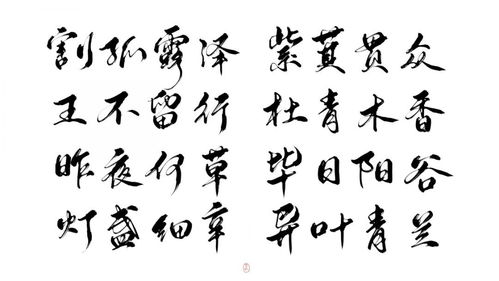 割孤露泽
王不留行
昨夜何草
灯盏细辛
紫萁贯众
杜青木香
毕日阳谷
异叶青兰